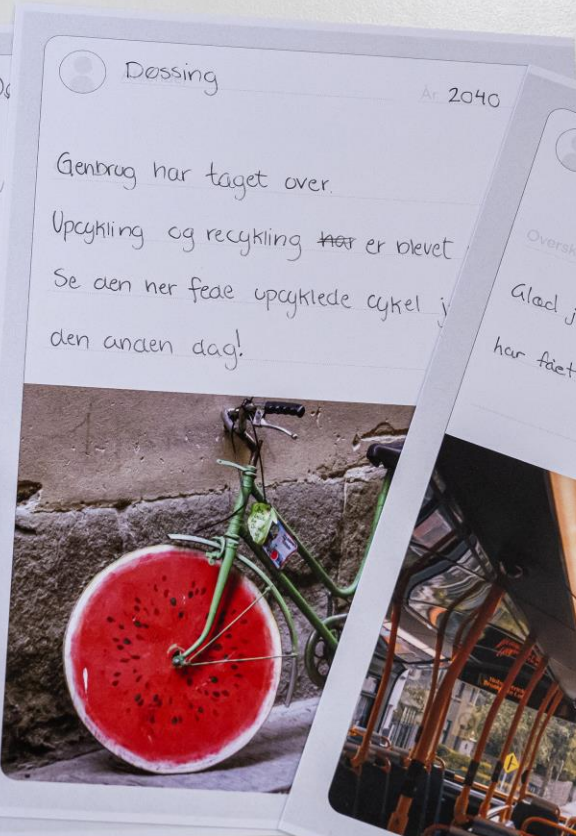 Døssing
År 2040
Genbrug har taget over.
Upcykling og recykling har er blevet
Se den her fede upcyklede cykel j
den anden dag!
Oversk
Glad j
har fået